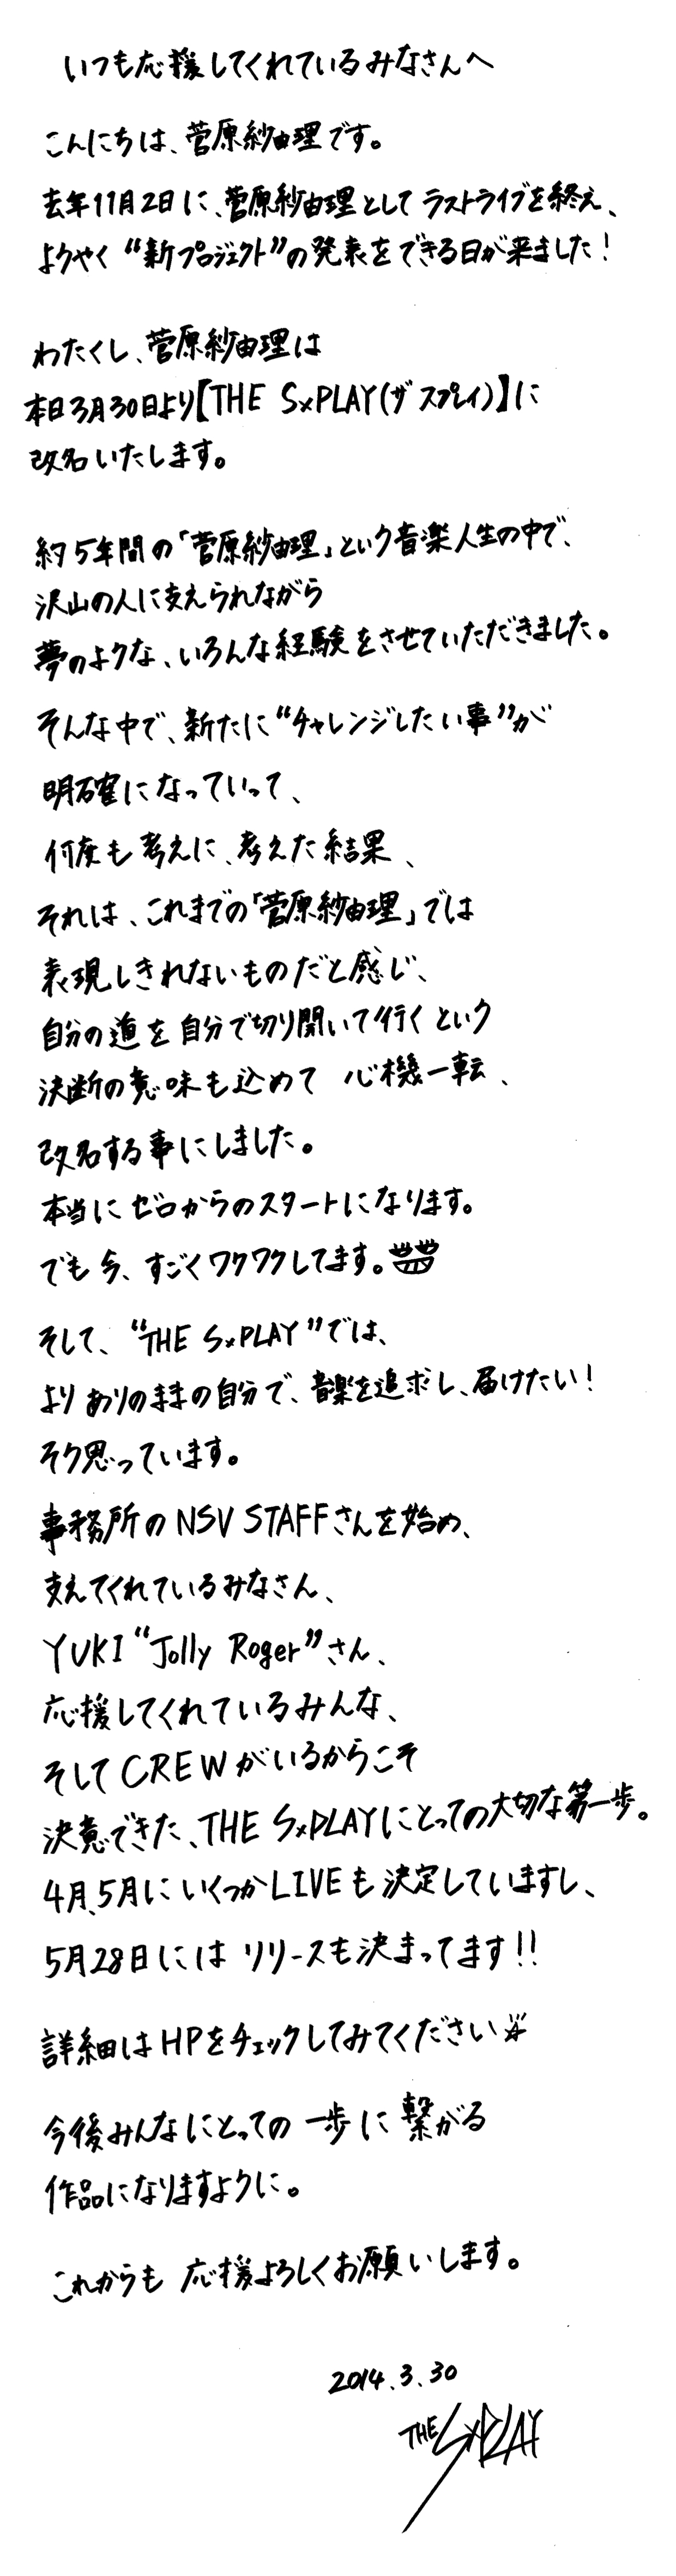 いつも応援してくれているみなさんへ
こんにちは、菅原紗由理です。
去年11月2日に、菅原紗由理としてラストライブを終え、
ようやく“新プロジェクト”の発表をできる日が来ました！
わたくし、菅原紗由理は
本日3月30日より【THE SxPLAY(ザ スプレイ)】に
改名いたします。
約5年間の「菅原紗由理」という音楽人生の中で、
沢山の人に支えられながら
夢のような、いろんな経験をさせていただきました。
そんな中で、新たに“チャレンジしたい事”が
明確になっていって、
何度も考えに、考えた結果、
それは、これまでの「菅原紗由理」では
表現しきれないものだと感じ、
自分の道を自分で切り開いて行くという
決断の意味も込めて 心機一転、
改名する事にしました。
本当にゼロからのスタートになります。
でも今、すごくワクワクしてます。
そして、“THE SxPLAY”では、
よりありのままの自分で、音楽を追求し、届けたい！
そう思っています。
事務所のNSV STAFFさんを始め、
支えてくれているみなさん、
YUKI“Jolly Roger”さん、
応援してくれているみんな、
そしてCREWがいるからこそ
決意できた、THE SxPLAYにとっての大切な第一歩。
4月、5月にいくつかLIVEも決定していますし、
5月28日にはリリースも決まってます!!
詳細はHPをチェックしてみてください☆
今後みんなにとっての一歩に繋がる
作品になりますように。
これからも応援よろしくお願いします。
2014.3.30
THE SxPLAY